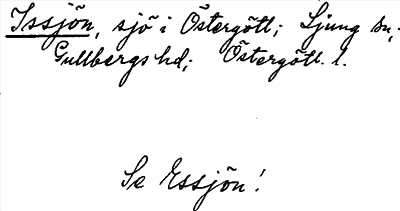 Issjön, sjö i Östergötl; Ljung sn,;
Gullbergs hd; Östergötl. l.
Se Essjön!